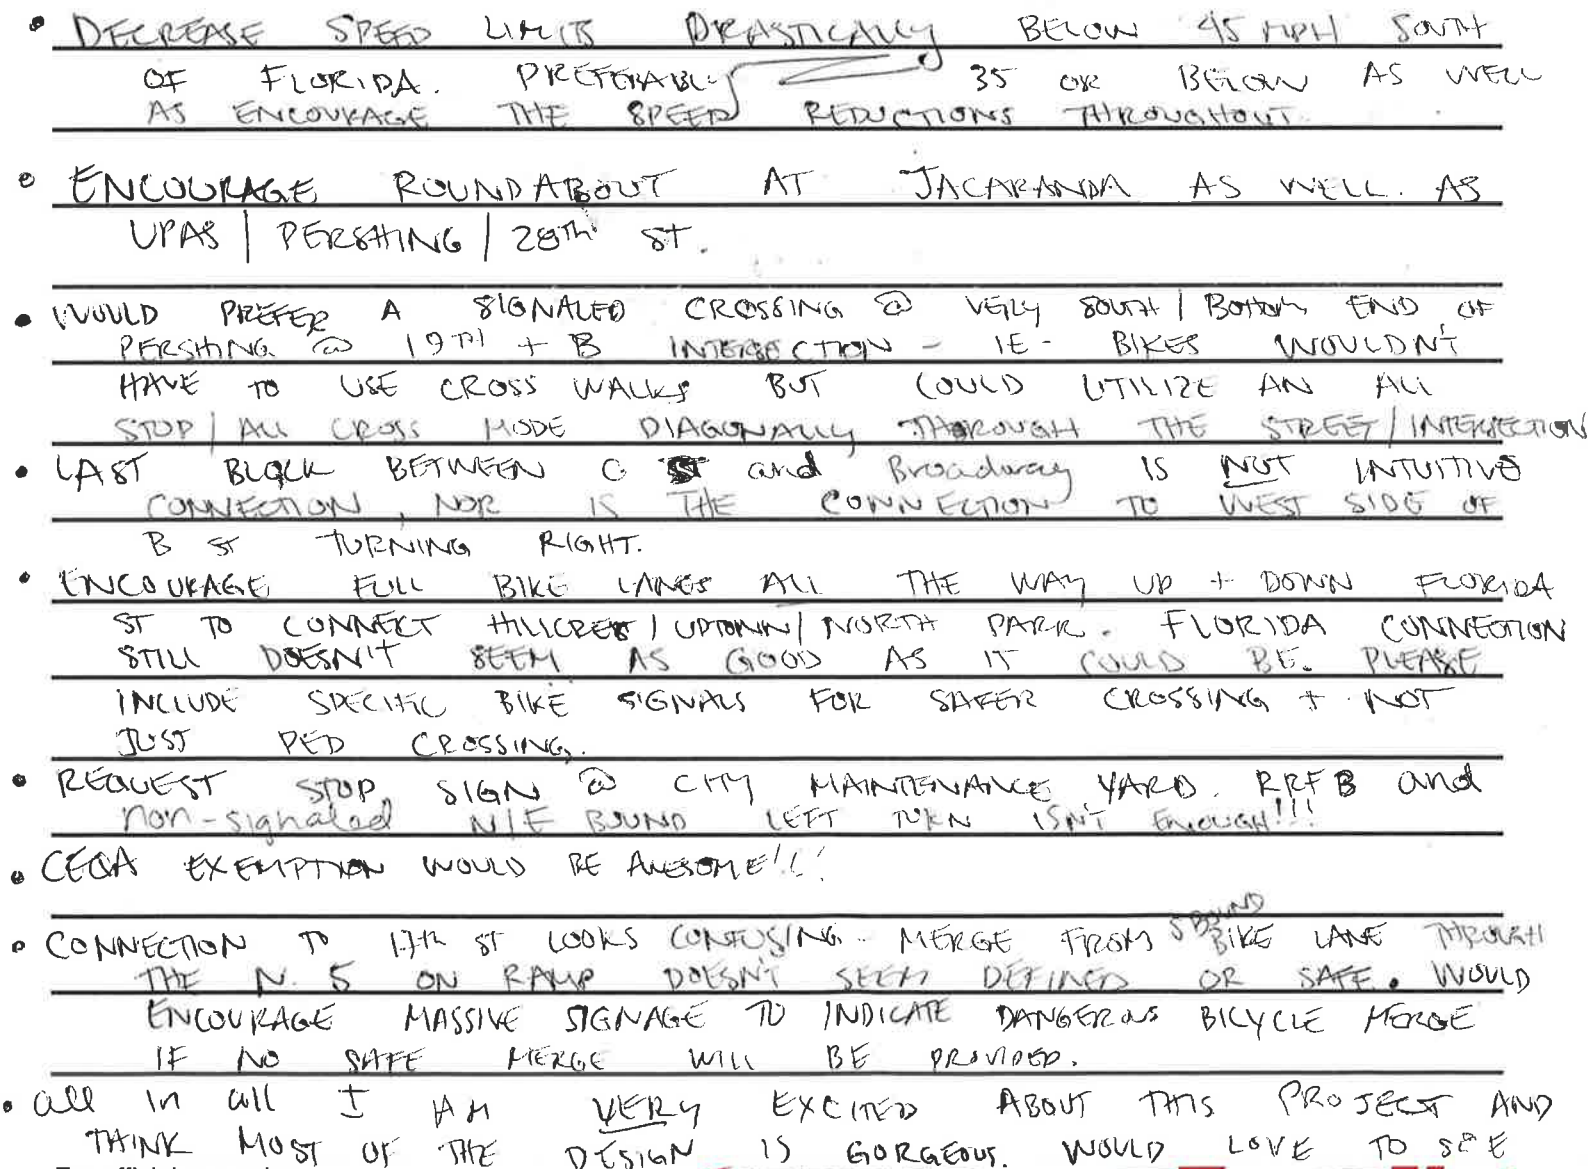 • DECREASE SPEED LIMITS DRASTICALLY BELOW 45 MPH SOUTH
OF FLORIDA. PREFERABLY 35 OR BELOW AS WELL
AS ENCOURAGE THE SPEED REDUCTIONS THROUGHOUT.
• ENCOURAGE ROUNDABOUT AT JACARANDA AS WELL. AS
UPAS | PERSHING | 28TH ST.
• WOULD PREFER A SIGNALED CROSSING @ VERY SOUTH / BOTTOM END OF
PERSHING @ 19TH + B INTERSECTION - IE - BIKES WOULDN'T
HAVE TO USE CROSS WALKS BUT COULD UTILIZE AN ALL
STOP / ALL CROSS MODE DIAGONALLY THOROUGH THE STREET / INTERSECTION
• LAST BLOCK BETWEEN C ST and Broadway IS NOT INTUITIVE
CONNECTION, NOR IS THE CONNECTION TO WEST SIDE OF
B ST TURNING RIGHT.
• ENCOURAGE FULL BIKE LANES ALL THE WAY UP + DOWN FLORIDA
ST TO CONNECT HILLCREST / UPTOWN / NORTH PARK. FLORIDA CONNECTION
STILL DOESN'T SEEM AS GOOD AS IT COULD BE. PLEASE
INCLUDE SPECIFIC BIKE SIGNALS FOR SAFER CROSSING + NOT
JUST PED CROSSING.
• REQUEST STOP SIGN @ CITY MAINTENANCE YARD. RRFB and
non-signaled N/E BOUND LEFT TURN ISN'T ENOUGH!!!
• CEQA EXEMPTION WOULD BE AWESOME!!!
• CONNECTION TO 17th ST LOOKS CONFUSING. MERGE FROM S BOUND BIKE LANE THROUGH
THE N. 5 ON RAMP DOESN'T SEEM DEFINED OR SAFE. WOULD
ENCOURAGE MASSIVE SIGNAGE TO INDICATE DANGEROUS BICYCLE MERGE
IF NO SAFE MERGE WILL BE PROVIDED.
• all in all I AM VERY EXCITED ABOUT THIS PROJECT AND
THINK MOST OF THE DESIGN IS GORGEOUS. WOULD LOVE TO SEE